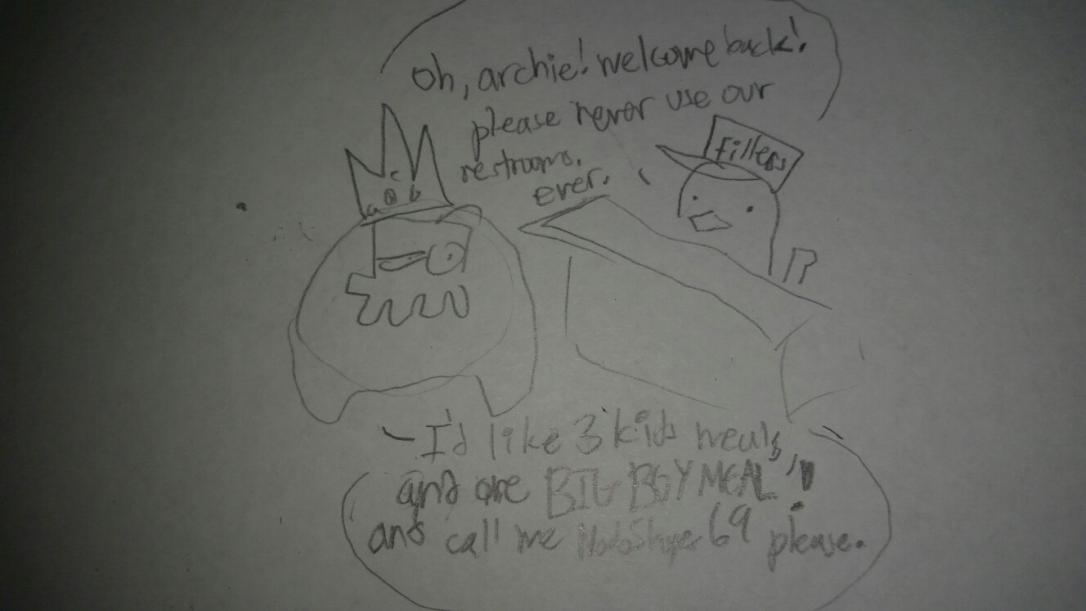 Oh, archie! welcome back!
please never use our
restrooms.
ever.
fillers
I'd like 3 kids meals
and one BIG BOY MEAL
and call me 69 please.